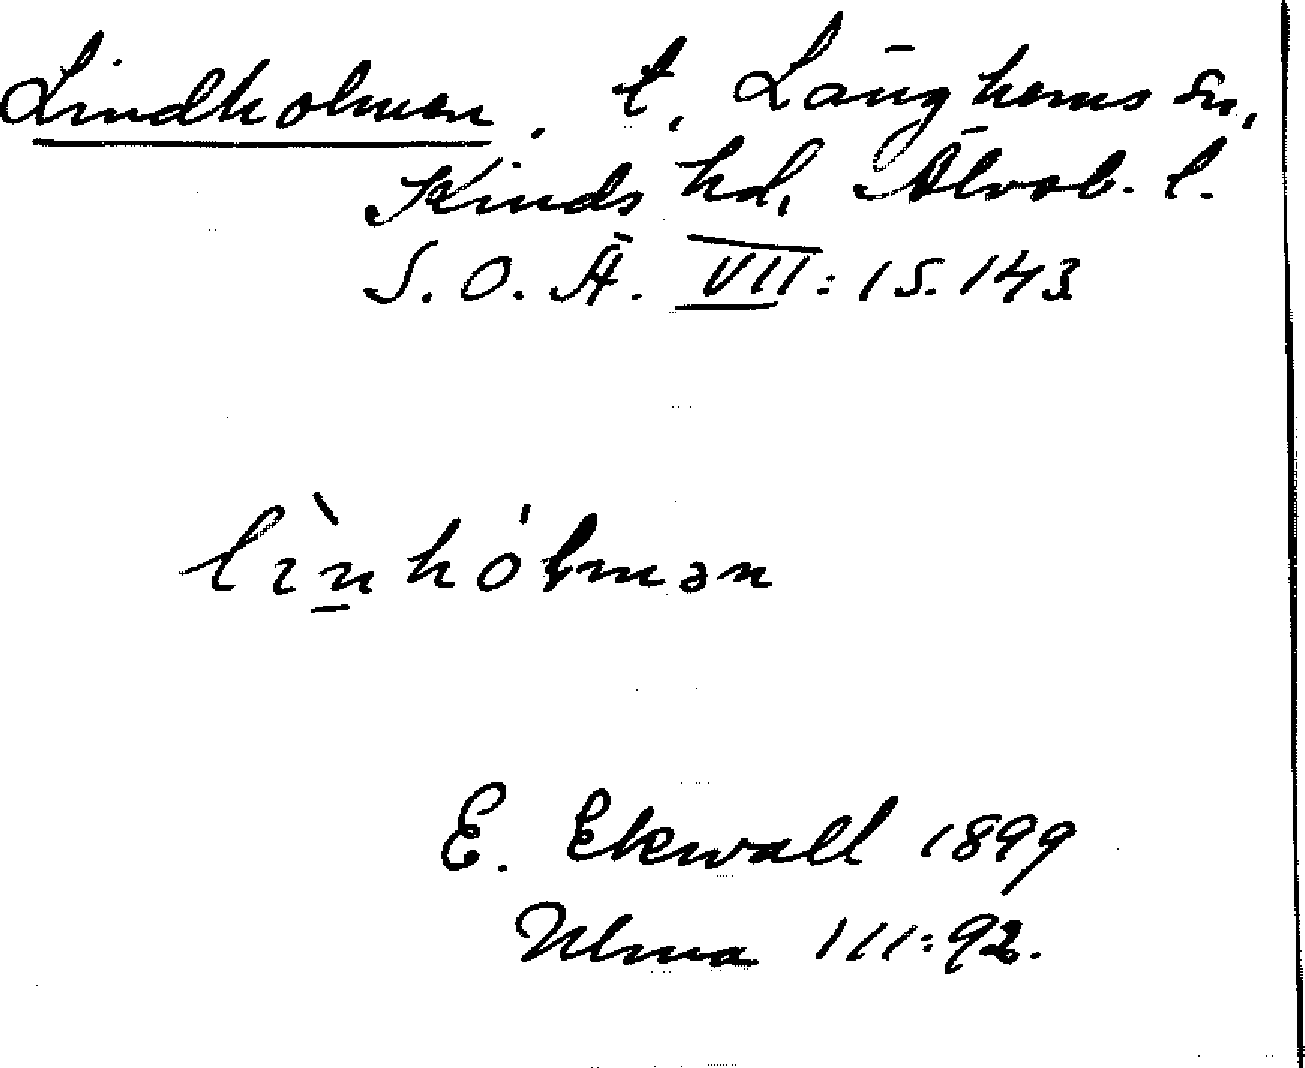 Lindholmen. t. Länghems sn,
Kinds hd, Älvsb. l.
S. O. Ä. VII: 1 S. 143
lìn̲hólmən
E. Ekwall 1899
Ulma 111:92.